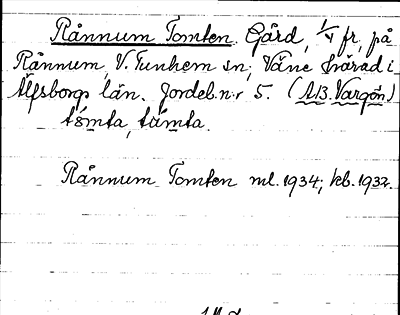 Rånnum Tomten. Gård, 1/4 fr, på
Rånnum, V. Tunhem sn; Väne härad i
Älfsborgs län. Jordeb.n:r 5. (A.B. Vargön)
tömta, tämta.
Rånnum Tomten ml. 1934; kb. 1932.